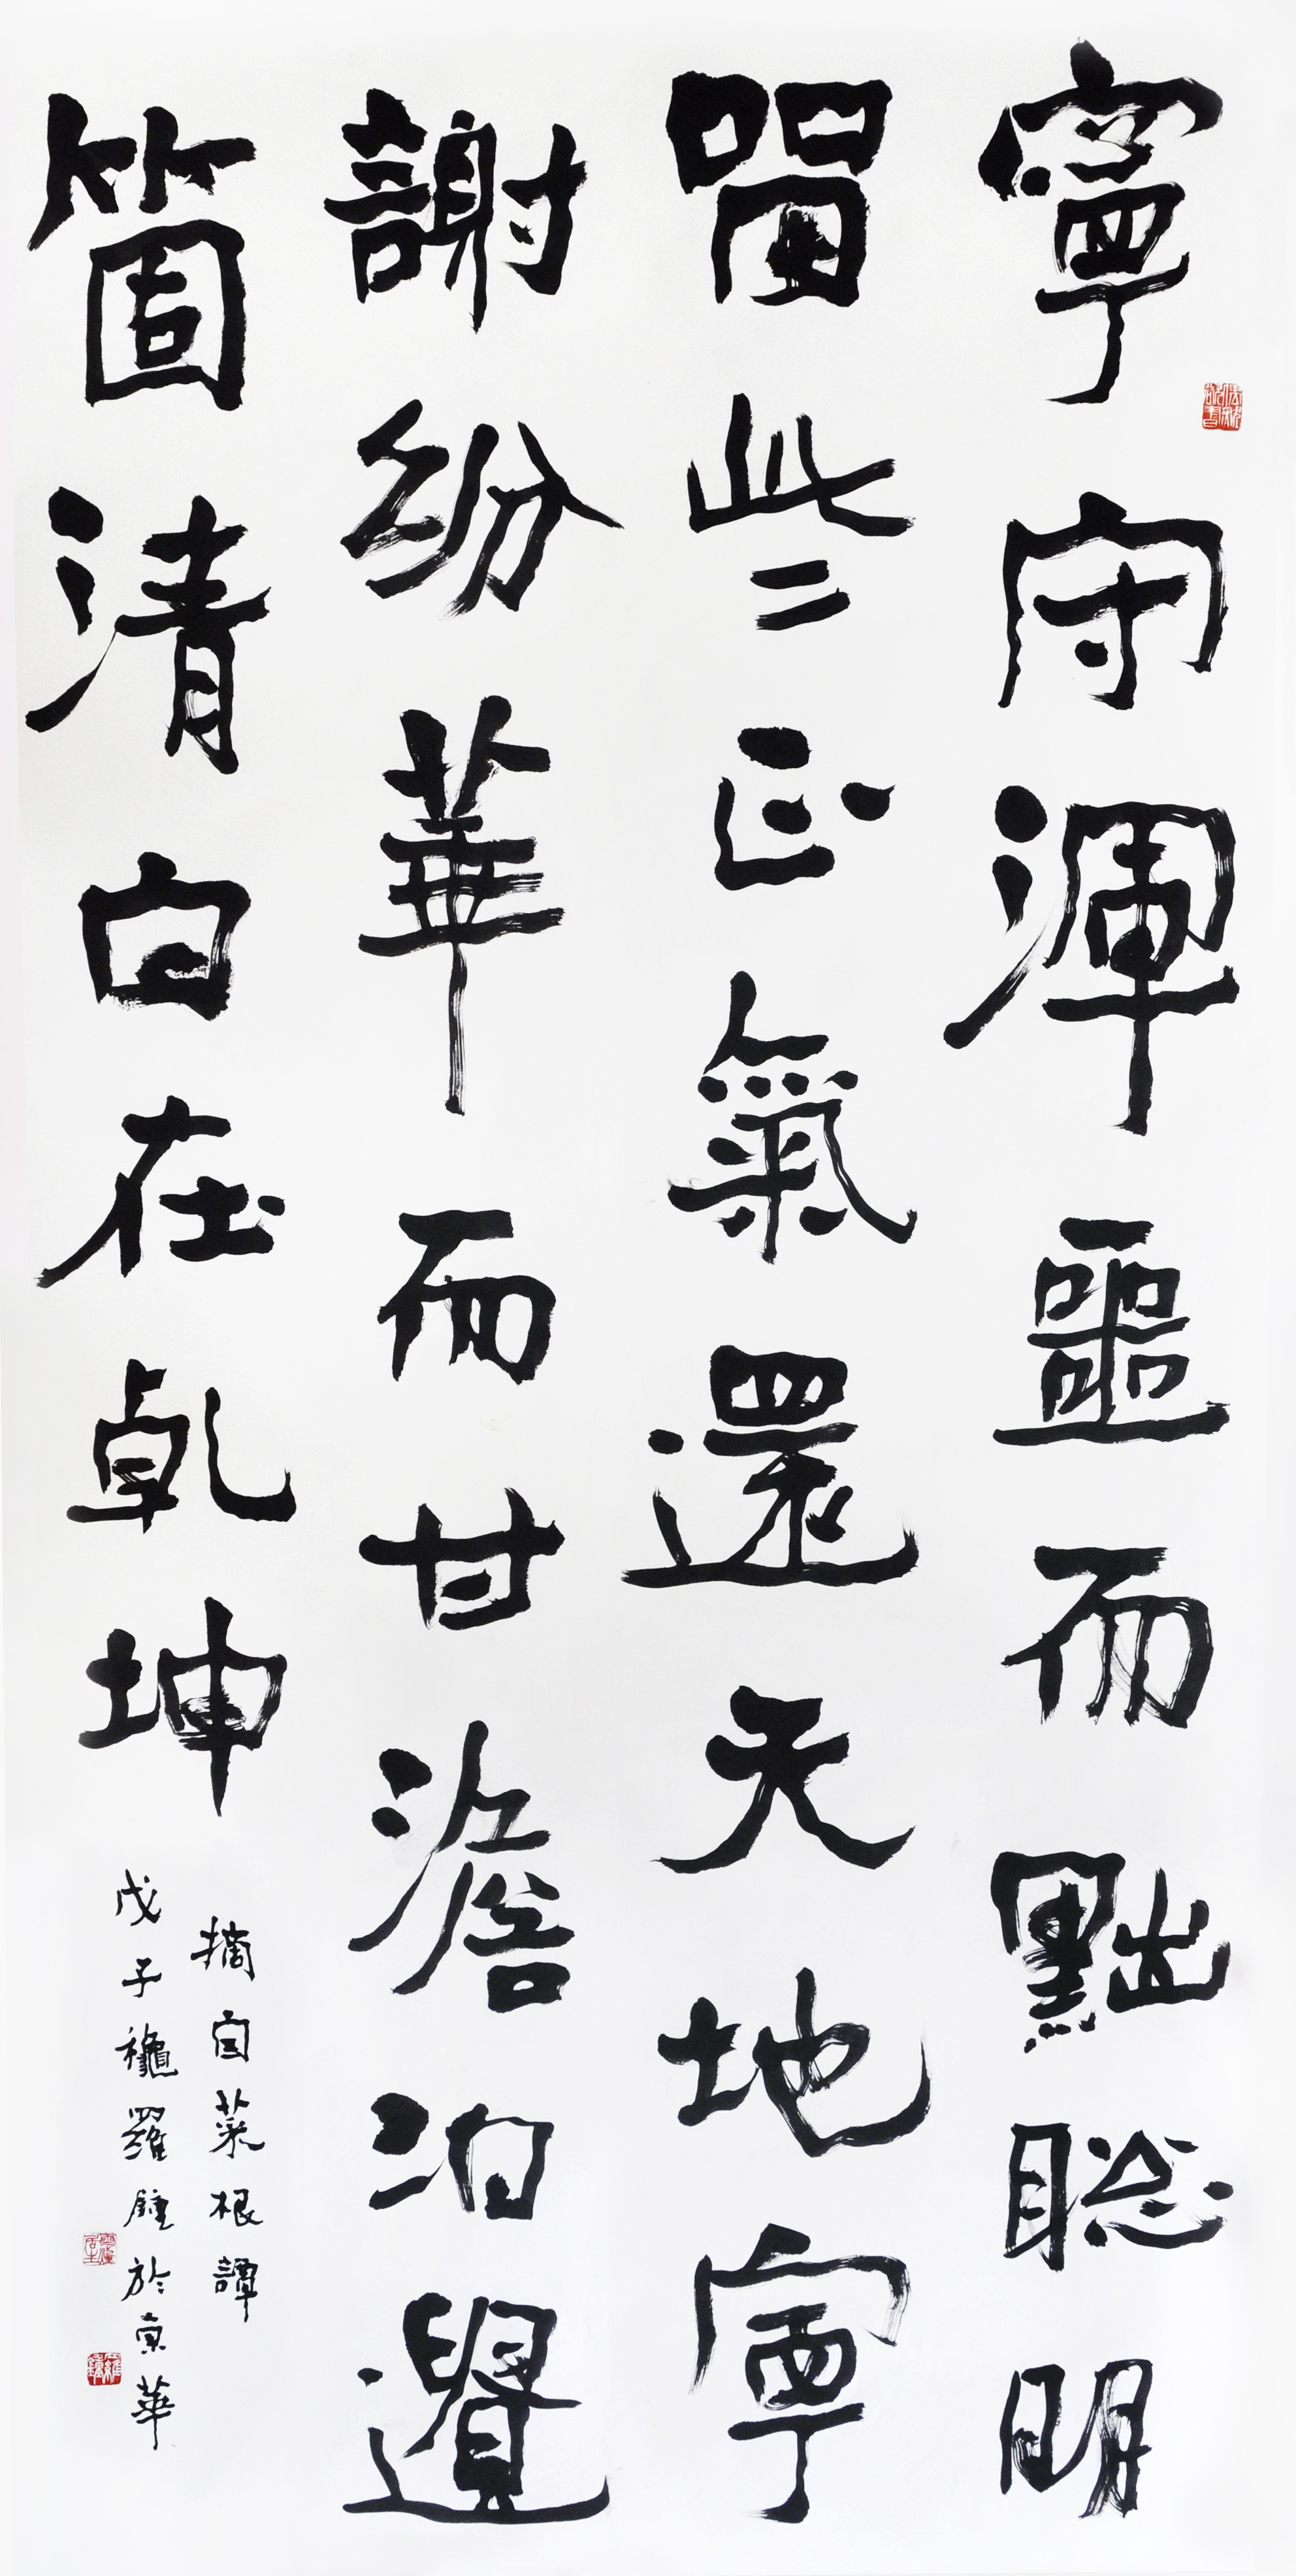 寧守渾噩而黜聰明
留些正氣還天地寧
謝紛華而甘澹泊遺
箇清白在乾坤
摘自菜根譚
戊子穐羅鍾於京華